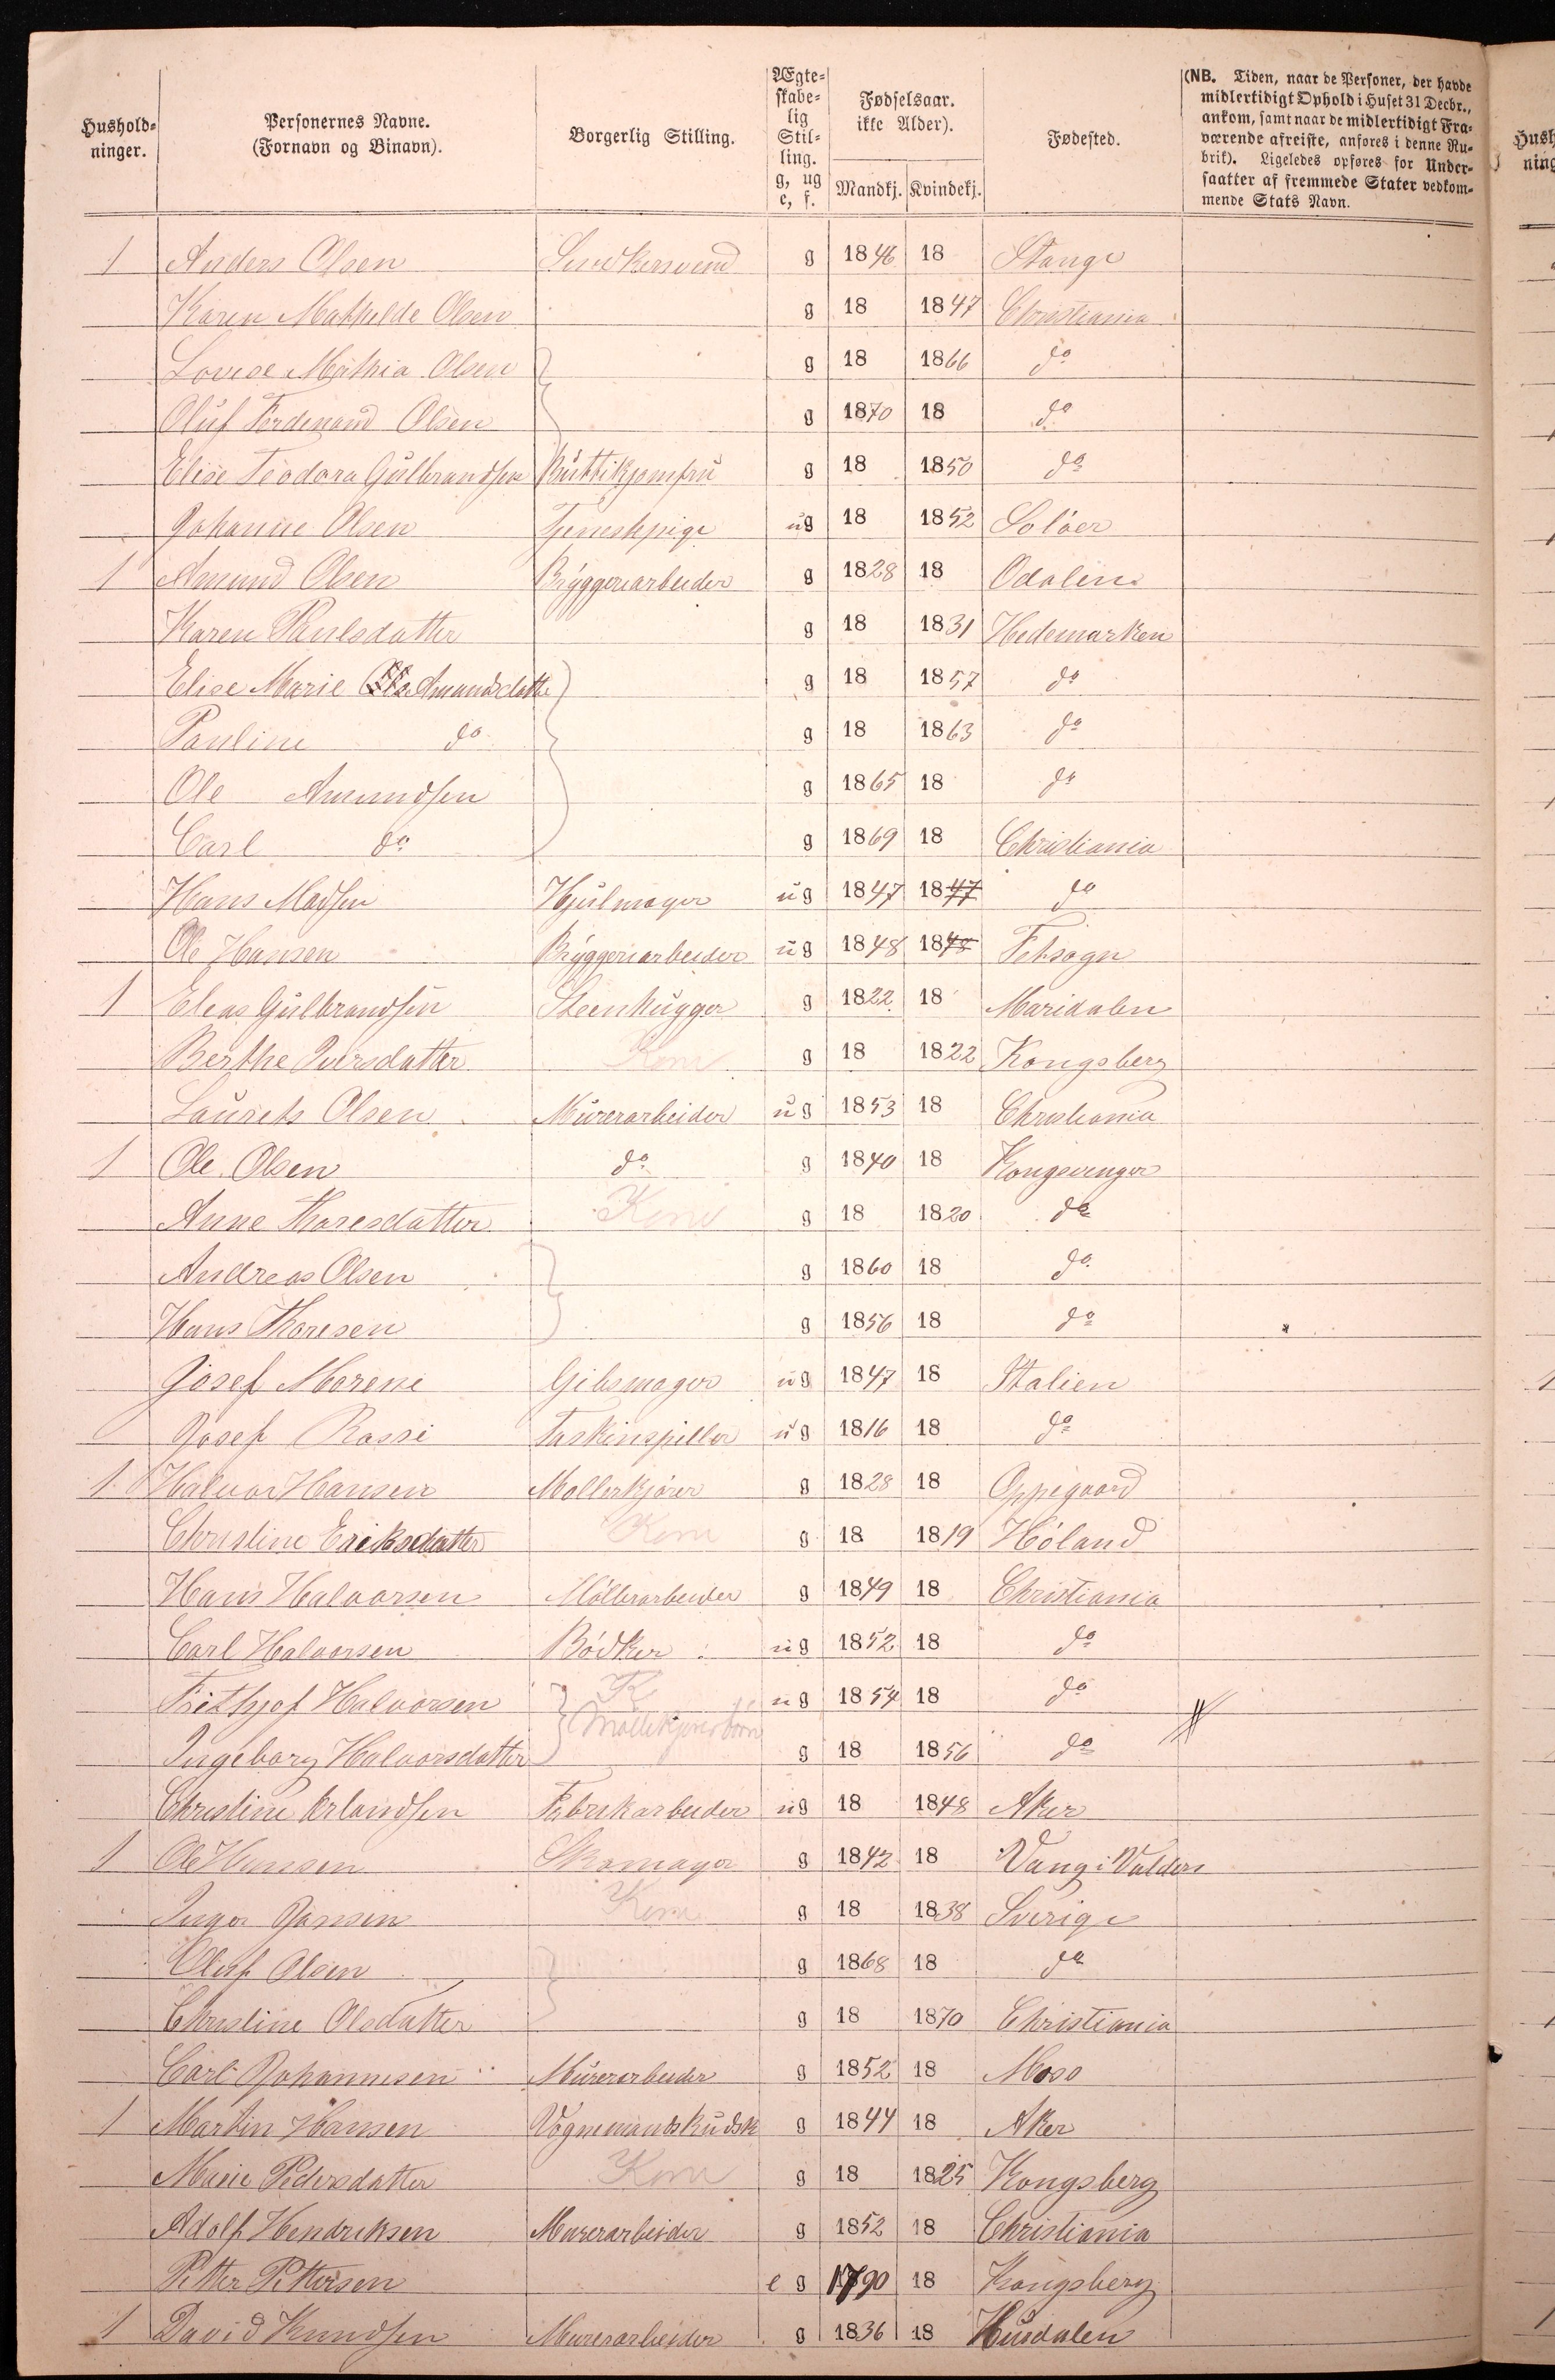 Hushold-
ninger.
Personernes Navne.
(Fornavn og Binavn).
Borgerlig Stilling.
Ægte-
skabe-
lig
Stil-
ling.
g, ug
e, f.
Fødselsaar.
ikke Alder).
Mandkj. Kvindekj.
Fødested.
(NB. Tiden, naar de Personer, der havde
midlertidigt Ophold i Huset 31 Decbr.,
ankom, samt naar de midlertidigt Fra-
værende afreiste, anføres i denne Ru-
brik). Ligeledes opføres for Under-
saatter af fremmede Stater vedkom-
mende Stats Navn.
1 Anders Olsen g 1846 18 Stange
Karen Mathilde Olsen g 18 1847 Christiania
Lovise Mathia Olsen g 18 1866 do
Oluf Ferdenand Olsen g 1870 18 do
Elise Teodora Gulbrandsen Buttikjomfru g 18 1850 do
Johanne Olsen Tjenestpige ug 18 1852 Soløer
1 Amund Olsen Bryggeriarbeider g 1828 18 Odalen
Karen Paulsdatter g 18 1831 Hedemarken
Elise Marie Amundsdatte g 18 1857 do
Pauline do g 18 1863 do
Ole Amundsen g 1865 18 do
Carl do g 1869 18 Christiania
Hans Madsen Hjulmager ug 1847 1847 do
Ole Hansen Bryggeriarbeider ug 1848 1848 Fetsogn
1 Elias Gulbrandsen Steenhugger g 1822 18 Maridalen
Berthe Iversdatter Kone g 18 1822 Kongsberg
Laurets Olsen Murerarbeider ug 1853 18 Christiania
1 Ole Olsen do g 1840 18 Kongsvinger
Anne Thoresdatter Kone g 18 1820 do
Andreas Olsen g 1860 18 do
Hans Thoresen g 1856 18 do
Josef Morene Gibsmager ug 1847 18 Italien
Josef Rossi Taskinspiller ug 1816 18 do
1 Halvor Hansen Møllerkjører g 1828 18 Oppegaard
Christine Eriksdatter Kone g 18 1819 Høland
Hans Halvorsen Møllerarbeider g 1849 18 Christiania
Carl Halvorsen Bødker ug 1852 18 do
Frithjof Halvorsen K ug 1854 18 do
Ingeborg Halvorsdatter Møllekjørerbørn g 18 1856 do
Christine Erlandsen Fabrikarbeider ug 18 1848 Aker
1 Ole Hansen Skomager g 1842 18 Vang i Valders
Inger Jansen Kone g 18 1838 Sverige
Oluf Olsen g 1868 18 do
Christine Olsdatter g 18 1870 Christiania
Carl Johannesen Murerarbeider g 1852 18 Moss
1 Martin Hansen Vognemandskudsk g 1844 18 Aker
Marie Pedersdatter Kone g 18 1825 Kongsberg
Adolf Hendriksen Murerarbeider g 1852 18 Christiania
Petter Pettersen e g 1790 18 Kongsberg
1 David Knudsen Murerarbeider g 1836 18 Hurdalen